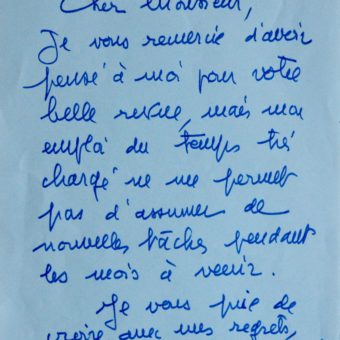 Cher Monsieur,
Je vous remercie d'avoir
pensé à moi pour votre
belle revue, mais mon
emploi du temps très
chargé ne me permet
pas d'assumer de
nouvelles tâches pendant
les mois à venir.
Je vous prie de
croire avec mes regrets,